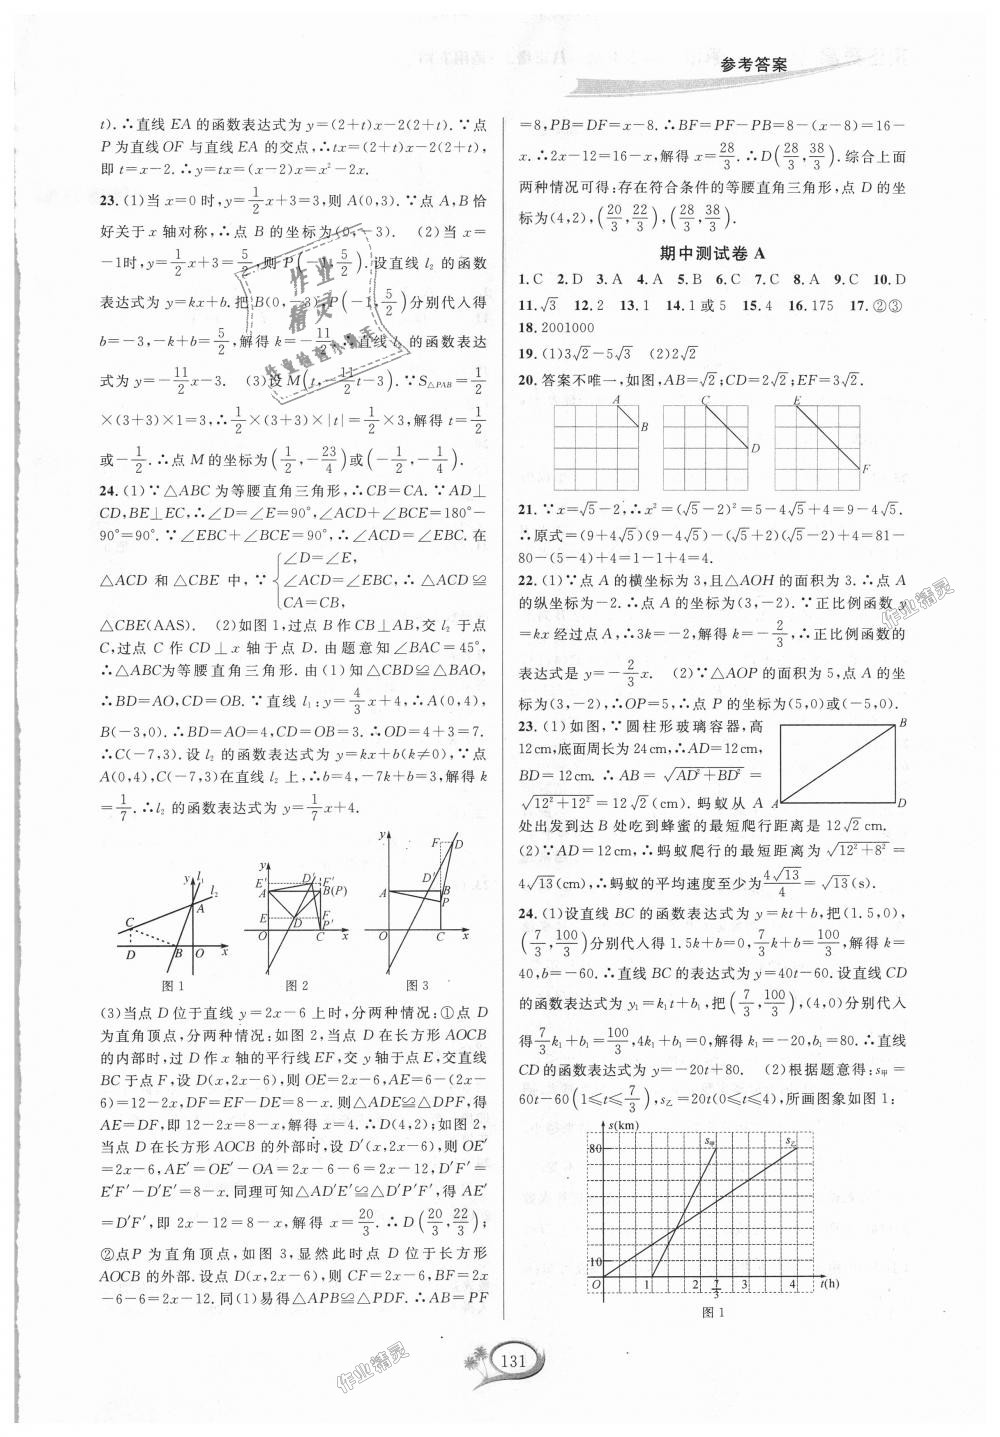 参考答案
t).∴直线 EA 的函数表达式为 y=(2+t)x-2(2+t).∵点
P 为直线 OF 与直线 EA 的交点,∴tx=(2+t)x-2(2+t),
即 t=x-2.∴y=tx=(x-2)x=x²-2x.
23.(1)当 x=0 时,y=1/2x+3=3,则 A(0,3).∵点 A,B 恰
好关于 x 轴对称,∴点 B 的坐标为(0,-3). (2)当 x=
-1时,y=1/2x+3=5/2,则 P(-1,5/2).设直线 l₂ 的函数
表达式为 y=kx+b.把 B(0,-3),P(-1,5/2)分别代入得
b=-3,-k+b=5/2,解得 k=-11/2.∴直线 l₂ 的函数表达
式为 y=-11/2x-3. (3)设 M(t,-11/2t-3).∵S△PAB=1/2
×(3+3)×1=3,∴1/2×(3+3)×|t|=1/2×3,解得 t=1/2
或-1/2.∴点 M 的坐标为(1/2,-23/4)或(-1/2,-1/4).
24.(1)∵△ABC 为等腰直角三角形,∴CB=CA.∵AD⊥
CD,BE⊥EC,∴∠D=∠E=90°,∠ACD+∠BCE=180°-
90°=90°.∵∠EBC+∠BCE=90°,∴∠ACD=∠EBC.在
△ACD 和△CBE 中,∵{∠D=∠E,
∠ACD=∠EBC,∴△ACD≌
CA=CB,
△CBE(AAS). (2)如图 1,过点 B 作 CB⊥AB,交 l₂ 于点
C,过点 C 作 CD⊥x 轴于点 D.由题意知∠BAC=45°,
∴△ABC为等腰直角三角形.由(1)知△CBD≌△BAO,
∴BD=AO,CD=OB.∵直线 l₁:y=4/3x+4,∴A(0,4),
B(-3,0).∴BD=AO=4,CD=OB=3.∴OD=4+3=7.
∴C(-7,3).设 l₂ 的函数表达式为 y=kx+b(k≠0),∵点
A(0,4),C(-7,3)在直线 l₂ 上,∴b=4,-7k+b=3,解得 k
=1/7.∴l₂ 的函数表达式为 y=1/7x+4.
y l₁ l₂ A C D B O x
图 1
y E′ D′ F′ A B(P) E D F P′ O C x
图 2
y F D D′ A B P O C x
图 3
(3)当点 D 位于直线 y=2x-6 上时,分两种情况:①点 D
为直角顶点,分两种情况:如图 2,当点 D 在长方形 AOCB
的内部时,过 D 作 x 轴的平行线 EF,交 y轴于点 E,交直线
BC 于点 F,设 D(x,2x-6),则 OE=2x-6,AE=6-(2x-
6)=12-2x,DF=EF-DE=8-x.则△ADE≌△DPF,得
AE=DF,即 12-2x=8-x,解得 x=4.∴D(4,2);如图 2,
当点 D 在长方形 AOCB 的外部时,设 D′(x,2x-6),则 OE′
=2x-6,AE′=OE′-OA=2x-6-6=2x-12,D′F′=
E′F′-D′E′=8-x.同理可知△AD′E′≌△D′P′F′,得 AE′
=D′F′,即 2x-12=8-x,解得 x=20/3.∴D(20/3,22/3);
②点P 为直角顶点,如图 3,显然此时点 D 位于长方形
AOCB 的外部.设点 D(x,2x-6),则 CF=2x-6,BF=2x
-6-6=2x-12.同(1)易得△APB≌△PDF.∴AB=PF
=8,PB=DF=x-8.∴BF=PF-PB=8-(x-8)=16-
x.∴2x-12=16-x,解得 x=28/3.∴D(28/3,38/3).综合上面
两种情况可得:存在符合条件的等腰直角三角形,点 D 的坐
标为(4,2),(20/3,22/3),(28/3,38/3).
期中测试卷 A
1.C 2.D 3.A 4.A 5.B 6.C 7.C 8.A 9.C 10.D
11.√3 12.2 13.1 14.1 或 5 15.4 16.175 17.②③
18.2001000
19.(1)3√2-5√3 (2)2√2
20.答案不唯一,如图,AB=√2;CD=2√2;EF=3√2.
A B C D E F
21.∵x=√5-2,∴x²=(√5-2)²=5-4√5+4=9-4√5.
∴原式=(9+4√5)(9-4√5)-(√5+2)(√5-2)+4=81-
80-(5-4)+4=1-1+4=4.
22.(1)∵点 A 的横坐标为 3,且△AOH 的面积为 3.∴点 A
的纵坐标为-2.∴点 A 的坐标为(3,-2).∵正比例函数 y
=kx 经过点 A,∴3k=-2,解得 k=-2/3,∴正比例函数的
表达式是 y=-2/3x. (2)∵△AOP 的面积为 5,点 A 的坐
标为(3,-2),∴OP=5,∴点 P 的坐标为(5,0)或(-5,0).
23.(1)如图,∵圆柱形玻璃容器,高
12cm,底面周长为 24cm,∴AD=12cm,
BD=12cm.∴AB=√(AD²+BD²)=
√(12²+12²)=12√2(cm).蚂蚁从 A
处出发到达 B 处吃到蜂蜜的最短爬行距离是 12√2 cm.
A B D
(2)∵AD=12cm,∴蚂蚁爬行的最短距离为√(12²+8²)=
4√13(cm),∴蚂蚁的平均速度至少为4√13/4=√13(s).
24.(1)设直线 BC 的函数表达式为 y=kt+b,把(1.5,0),
(7/3,100/3)分别代入得 1.5k+b=0,7/3k+b=100/3,解得 k=
40,b=-60.∴直线 BC 的表达式为 y=40t-60.设直线 CD
的函数表达式为 y₁=k₁t+b₁,把(7/3,100/3),(4,0)分别代入
得7/3k₁+b₁=100/3,4k₁+b₁=0,解得 k₁=-20,b₁=80.∴直线
CD 的函数表达式为 y=-20t+80. (2)根据题意得:s甲=
60t-60(1≤t≤7/3),s乙=20t(0≤t≤4),所画图象如图 1:
s(km) 80 s甲 s乙 10 O 1 2 7/3 3 4 t(h)
图 1
131
作业精灵
作业检查小助手
作业精灵
作业精灵